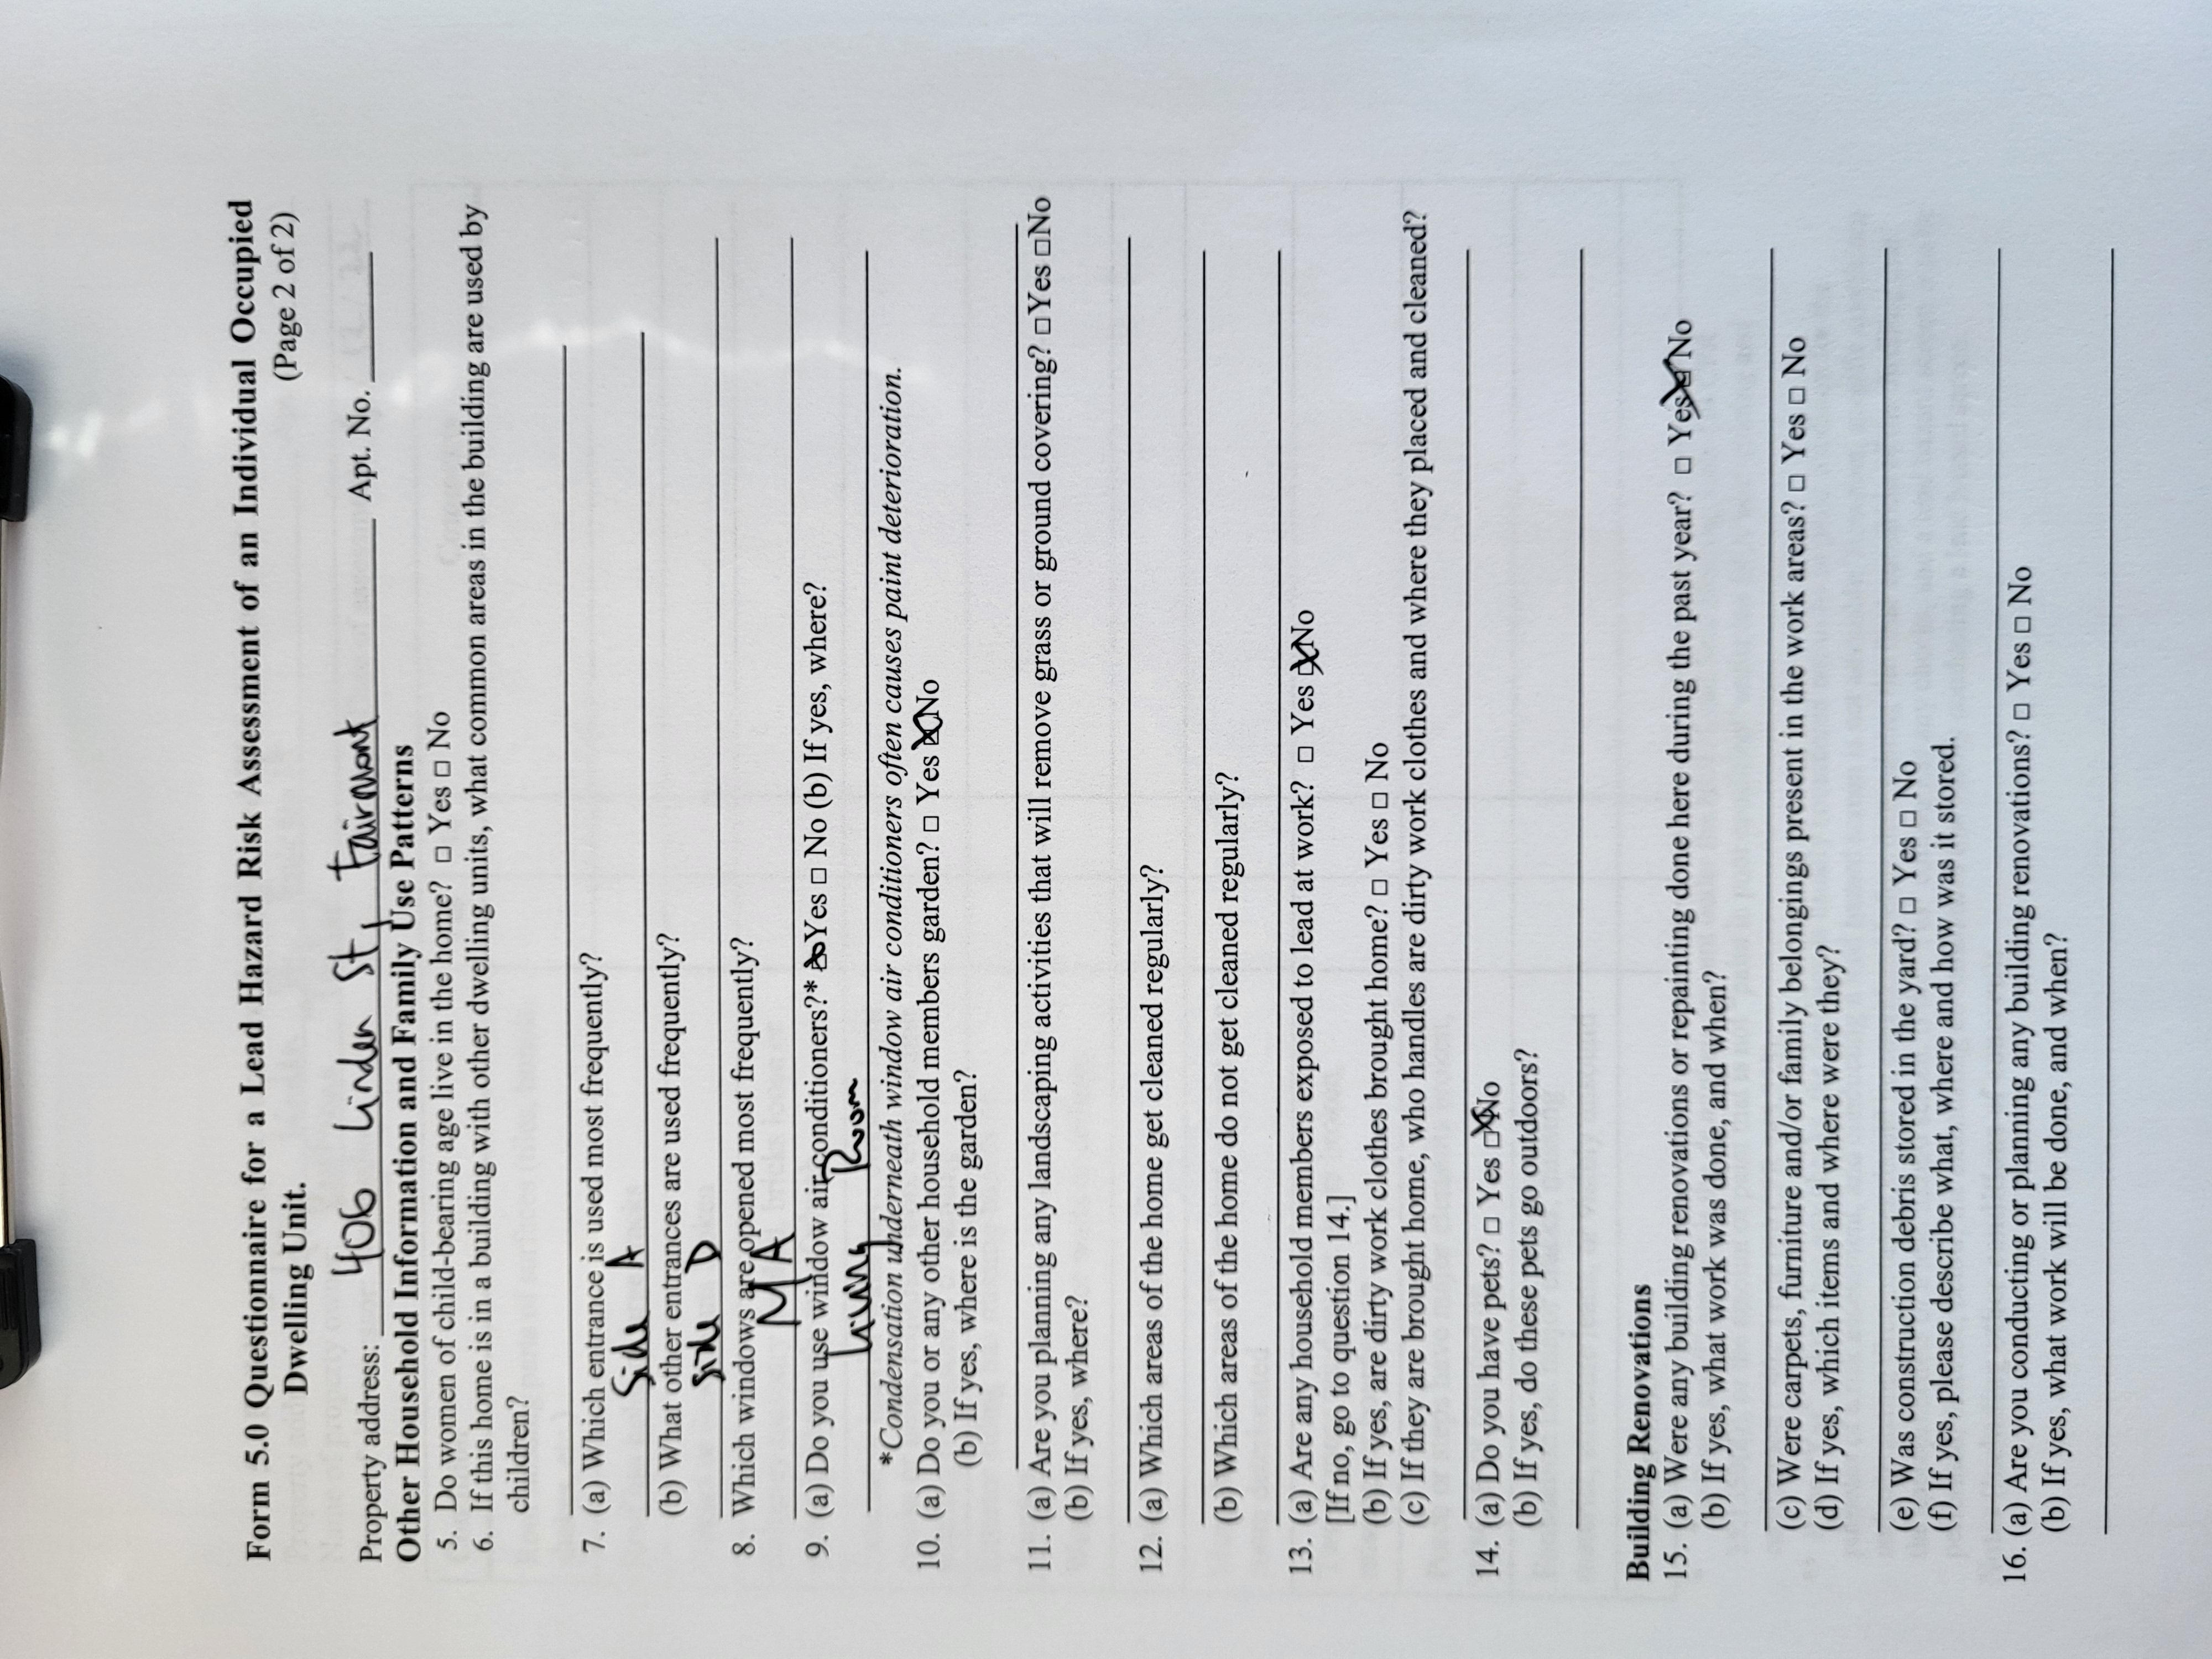 Form 5.0 Questionnaire for a Lead Hazard Risk Assessment of an Individual Occupied
Dwelling Unit. (Page 2 of 2)
Property address: 406 Linden St, Fairmont Apt. No.
Other Household Information and Family Use Patterns
5. Do women of child-bearing age live in the home? □ Yes □ No
6. If this home is in a building with other dwelling units, what common areas in the building are used by
children?
7. (a) Which entrance is used most frequently?
Side A
(b) What other entrances are used frequently?
Side D
8. Which windows are opened most frequently?
9. (a) Do you use window air conditioners?* ☒ Yes □ No (b) If yes, where?
Living Room
*Condensation underneath window air conditioners often causes paint deterioration.
10. (a) Do you or any other household members garden? □ Yes ☒ No
(b) If yes, where is the garden?
11. (a) Are you planning any landscaping activities that will remove grass or ground covering? □ Yes □ No
(b) If yes, where?
12. (a) Which areas of the home get cleaned regularly?
(b) Which areas of the home do not get cleaned regularly?
13. (a) Are any household members exposed to lead at work? □ Yes ☒ No
[If no, go to question 14.]
(b) If yes, are dirty work clothes brought home? □ Yes □ No
(c) If they are brought home, who handles are dirty work clothes and where they placed and cleaned?
14. (a) Do you have pets? □ Yes ☒ No
(b) If yes, do these pets go outdoors?
Building Renovations
15. (a) Were any building renovations or repainting done here during the past year? □ Yes ☒ No
(b) If yes, what work was done, and when?
(c) Were carpets, furniture and/or family belongings present in the work areas? □ Yes □ No
(d) If yes, which items and where were they?
(e) Was construction debris stored in the yard? □ Yes □ No
(f) If yes, please describe what, where and how was it stored.
16. (a) Are you conducting or planning any building renovations? □ Yes □ No
(b) If yes, what work will be done, and when?